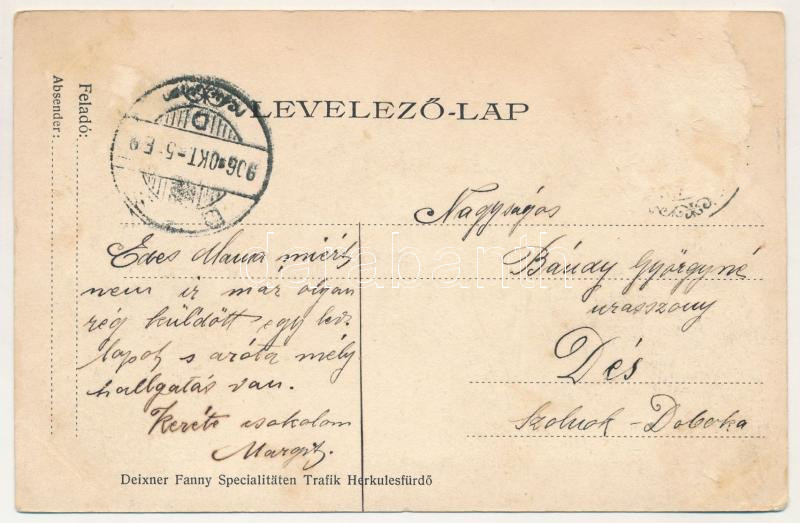 LEVELEZŐ-LAP
Feladó:
Absender:
906 OKT 5 E 9
D
darabanth
Nagyságos
Bándy Györgyné
urasszony
Dés
Szolnok-Doboka
Édes Mama miért
nem ir már olyan
rég küldött egy lev.
lapot s azóta mély
hallgatás van.
csokolom
Margit.
Deixner Fanny Specialitäten Trafik Herkulesfürdő